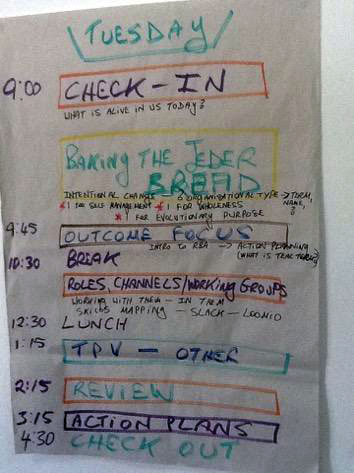 TUESDAY
9:00 CHECK-IN
WHAT IS ALIVE IN US TODAY?
BAKING THE JEDER
BREAD
INTENTIONAL CHANGES 6 ORGANISATIONAL TYPE → TORM,
1 FOR SELF MANAGEMENT 1 FOR WHOLENESS NAME,
1 FOR EVOLUTIONARY PURPOSE ?
9:45 OUTCOME FOCUS
INTRO TO RBA → ACTION PLANNING
10:30 BREAK (WHAT IS THAT TORM?)
ROLES, CHANNELS/WORKING GROUPS
WORKING WITH THEM - IN THEM
SKILLS MAPPING - SLACK - LOOMIO
12:30 LUNCH
1:15 TPV - OTHER
2:15 REVIEW
3:15 ACTION PLANS
4:30 CHECK OUT